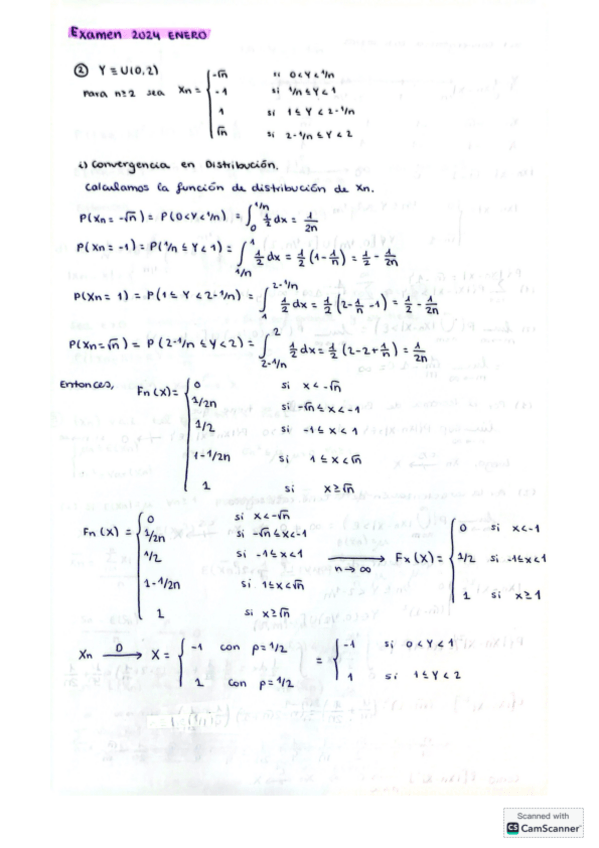 Examen 2024 ENERO
② Y ≡ U(0,2)
Para n≥2 sea Xn = { -√n si 0<Y<1/n
-1 si 1/n≤Y<1
1 si 1≤Y<2-1/n
√n si 2-1/n≤Y<2
i) Convergencia en Distribución.
Calculamos la función de distribución de Xn.
P(Xn=-√n) = P(0<Y<1/n) = ∫₀^{1/n} 1/2 dx = 1/2n
P(Xn=-1) = P(1/n≤Y<1) = ∫_{1/n}^1 1/2 dx = 1/2 (1-1/n) = 1/2 - 1/2n
P(Xn=1) = P(1≤Y<2-1/n) = ∫_1^{2-1/n} 1/2 dx = 1/2 (2-1/n-1) = 1/2 - 1/2n
P(Xn=√n) = P(2-1/n≤Y<2) = ∫_{2-1/n}^2 1/2 dx = 1/2 (2-2+1/n) = 1/2n
Entonces, Fn(x) = { 0 si x<-√n
1/2n si -√n≤x<-1
1/2 si -1≤x<1
1-1/2n si 1≤x<√n
1 si x≥√n
Fn(x) = { 0 si x<-√n
1/2n si -√n≤x<-1
1/2 si -1≤x<1
1-1/2n si 1≤x<√n
1 si x≥√n
⟶ n→∞
Fx(x) = { 0 si x<-1
1/2 si -1≤x<1
1 si x≥1
Xn ⟶D X = { -1 con p=1/2
1 con p=1/2
= { -1 si 0<Y<1
1 si 1≤Y<2
Scanned with
CS CamScanner